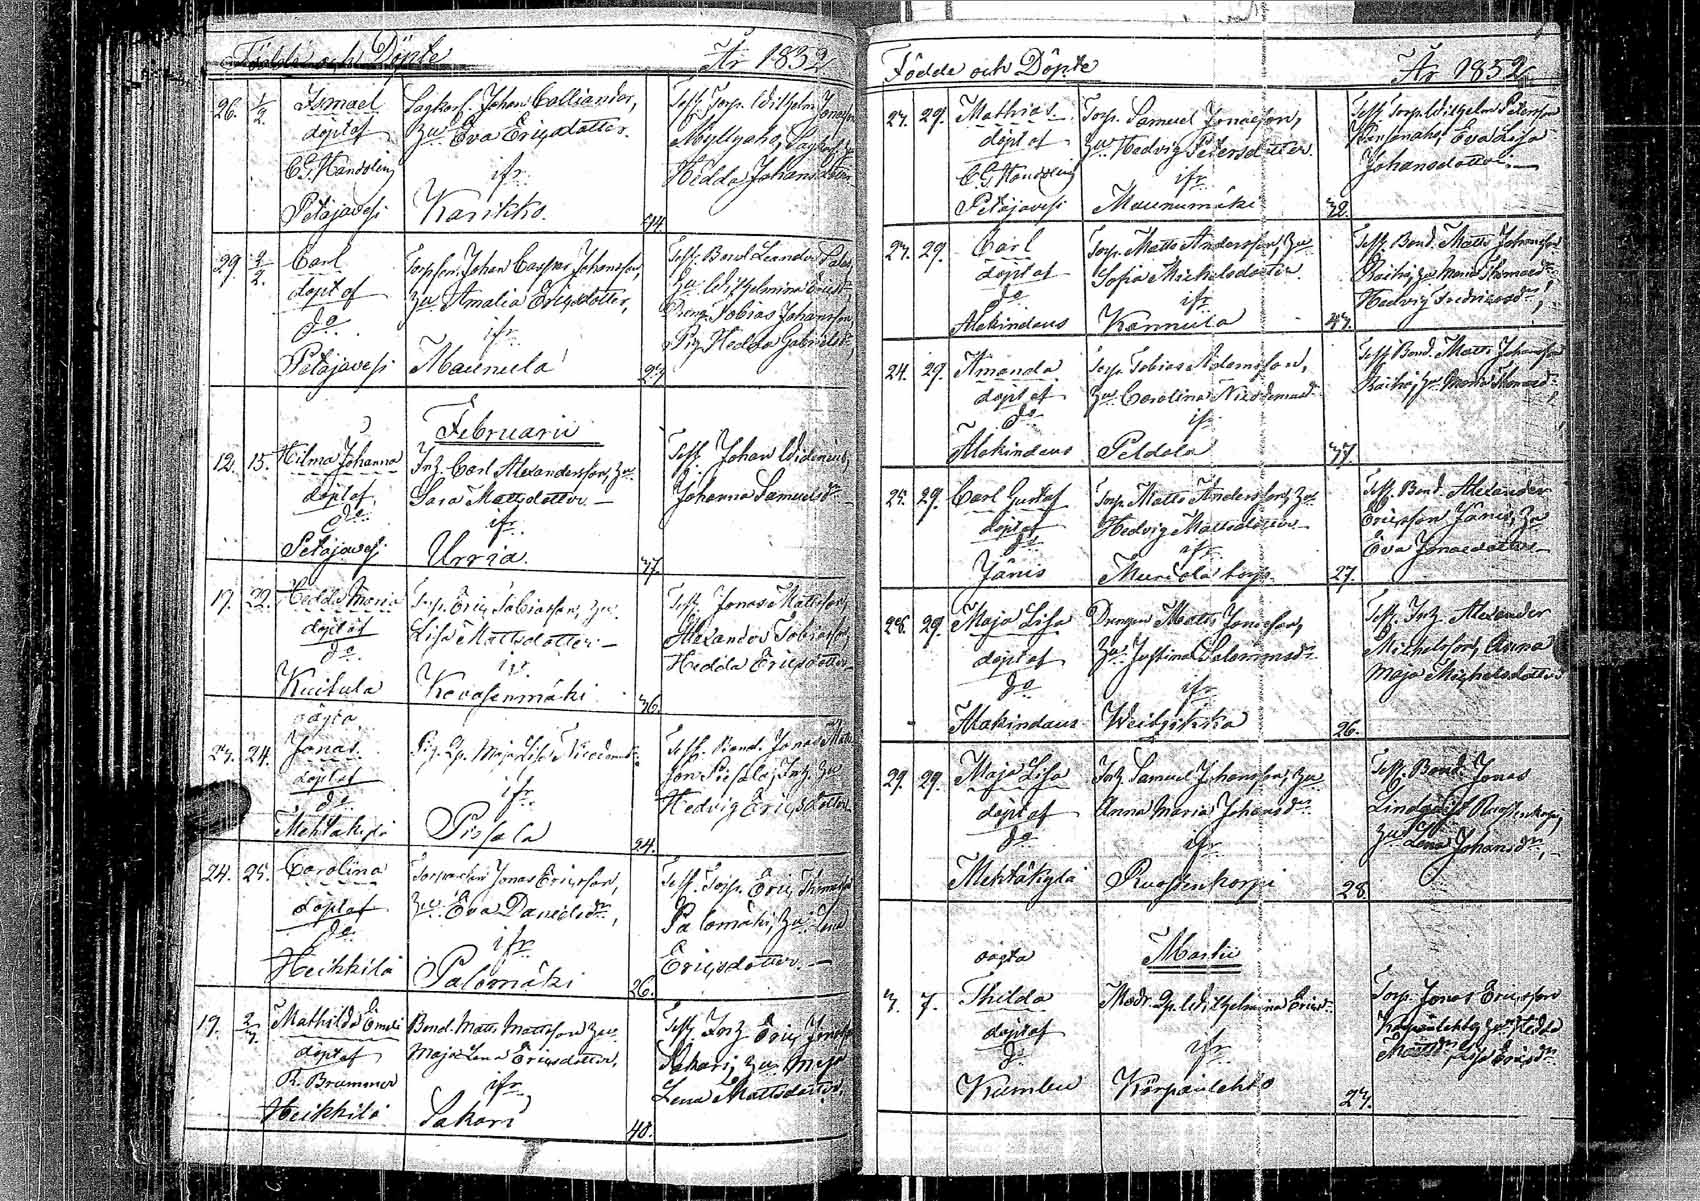 Födde och Döpte
År 1852
26.
1/2.
Ismael
döpt af
C. G. Handolin
Petäjävesi
Johan Calliander,
Hu Eva Ericsdotter.
ifr
Karikko.
44
Test. Torp. Wilhelm Jonasson
Myllyaho,
Hedda Johansdotter
29.
2/2.
Carl
döpt af
do
Petäjävesi
Johan Caspar Johansson,
Hu Amalia Ericsdotter,
ifr
Maunula
Test. Bond Leander
Hu Wilhelmina
Dreng. Tobias Johansson
Pig. Hedda Gabrielsdr
Februarii
12.
15.
Hilma Johanna
döpt af
do
Petäjävesi
Inh. Carl Alexandersson, Hu
Sara Mattsdotter
ifr
Urria.
37.
Test. Johan Widenius,
Johanna Samuelsdr
17.
22.
Hedda Maria
döpt af
do
Kuitula
Torp. Eric Tobiasson, Hu
Lisa Mattsdotter
ifr
Kevasenmäki
36.
Test. Jonas Mattsson,
Alexander Tobiasson,
Hedda Ericsdotter
oägta
23.
24.
Jonas
döpt af
do
Mehtäkylä
Pig. Maja Lisa
ifr
Piesala
24.
Test. Bond. Jonas Matts
son Piesala, Inh. Hu
Hedvig Ericsdotter
24.
25.
Carolina
döpt af
do
Heikkilä
Torparen Jonas Ericsson,
Hu Eva Danielsdr,
ifr
Palomäki
26.
Test. Torp. Eric Thomasson
Palomäki, Hu Lena
Ericsdotter.
19.
2/3
Mathilda Emeli
döpt af
R. Brummer
Heikkilä
Bond. Matts Mattsson Hu
Maja Lena Ericsdotter.
ifr
Sakari
40.
Test. Inh. Eric
Sakari, Hu Maja
Lena Mattsdotter.
Födde och Döpte
År 1852
23.
29.
Mathias
döpt af
C. G. Handolin
Petäjävesi
Torp. Samuel Jonasson,
Hu Hedvig Petersdotter.
ifr
Maunumäki
32.
Test. Torp. Wilhelm Petersson
Eva Lisa
Johansdotter.
23.
29.
Carl
döpt af
do
Alakindaus
Torp. Matts Andersson, Hu
Sofia Michelsdotter
ifr
Kannula
43.
Test. Bond. Matts Johansson
Raiha, Hu Maria Thomasdr
Hedvig Fredricsdr
24.
29.
Amanda
döpt af
do
Alakindaus
Torp. Tobias Adamsson,
Hu Carolina Nicodemusdr
ifr
Peldola
37.
Test. Bond. Matts Johansson
Raiha, Hu Maria Thomasdr
25.
29.
Carl Gustaf
döpt af
do
Jänis
Torp. Matts Andersson, Hu
Hedvig Mattsdotter
ifr
27.
Test. Bond. Alexander
Ericsson Jänis, Hu
Eva Jonaedotter
28.
29.
Maja Lisa
döpt af
do
Alakindaus
Drengen Matts Jonasson,
Hu Justina Salomonsdr
ifr
26.
Test. Inh. Alexander
Michelsson, Anna
Maja Michelsdotter
29.
29.
Maja Lisa
döpt af
do
Mehtäkylä
Inh. Samuel Johansson, Hu
Anna Maria Johansdr
ifr
Ruostenkorpi
28.
Test. Bond. Jonas
Lindqvist Ruostenkorpi,
Hu Lena Johansdr,
oägta
Martii
3.
7.
Thilda
döpt af
do
Kumbu
Modr. Wilhelmina Ericsdr
ifr
Körpänlehto
23.
Torp. Jonas Ericsson
Körpänlehto, Hu Hedda
Mattsdr, Lisa Ericsdr